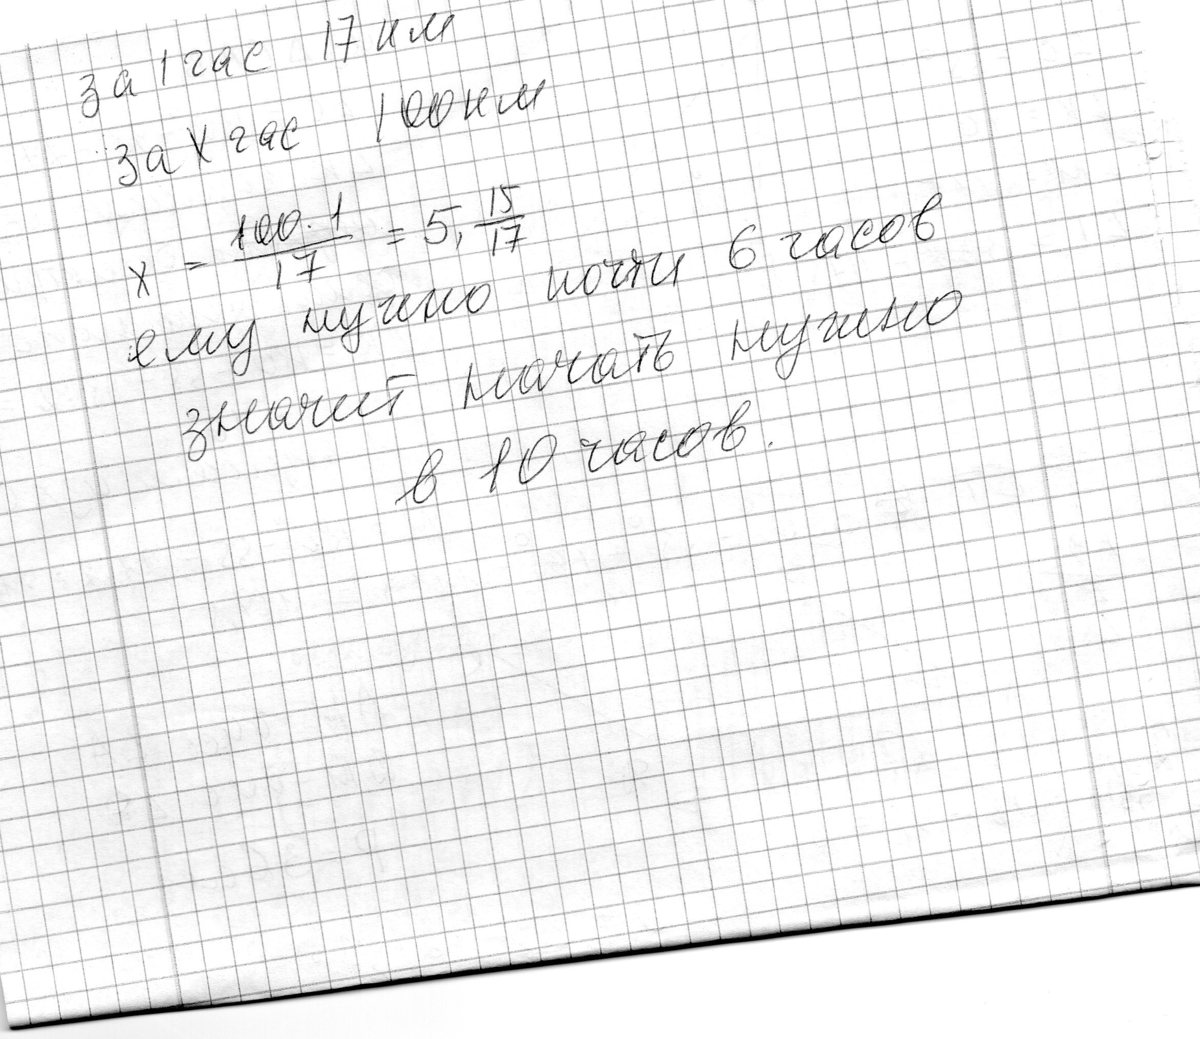 за 1 час 17 км
за х час 100 км
х = 100 · 1 / 17 = 5, 15/17
ему нужно почти 6 часов
значит начать нужно
в 10 часов.